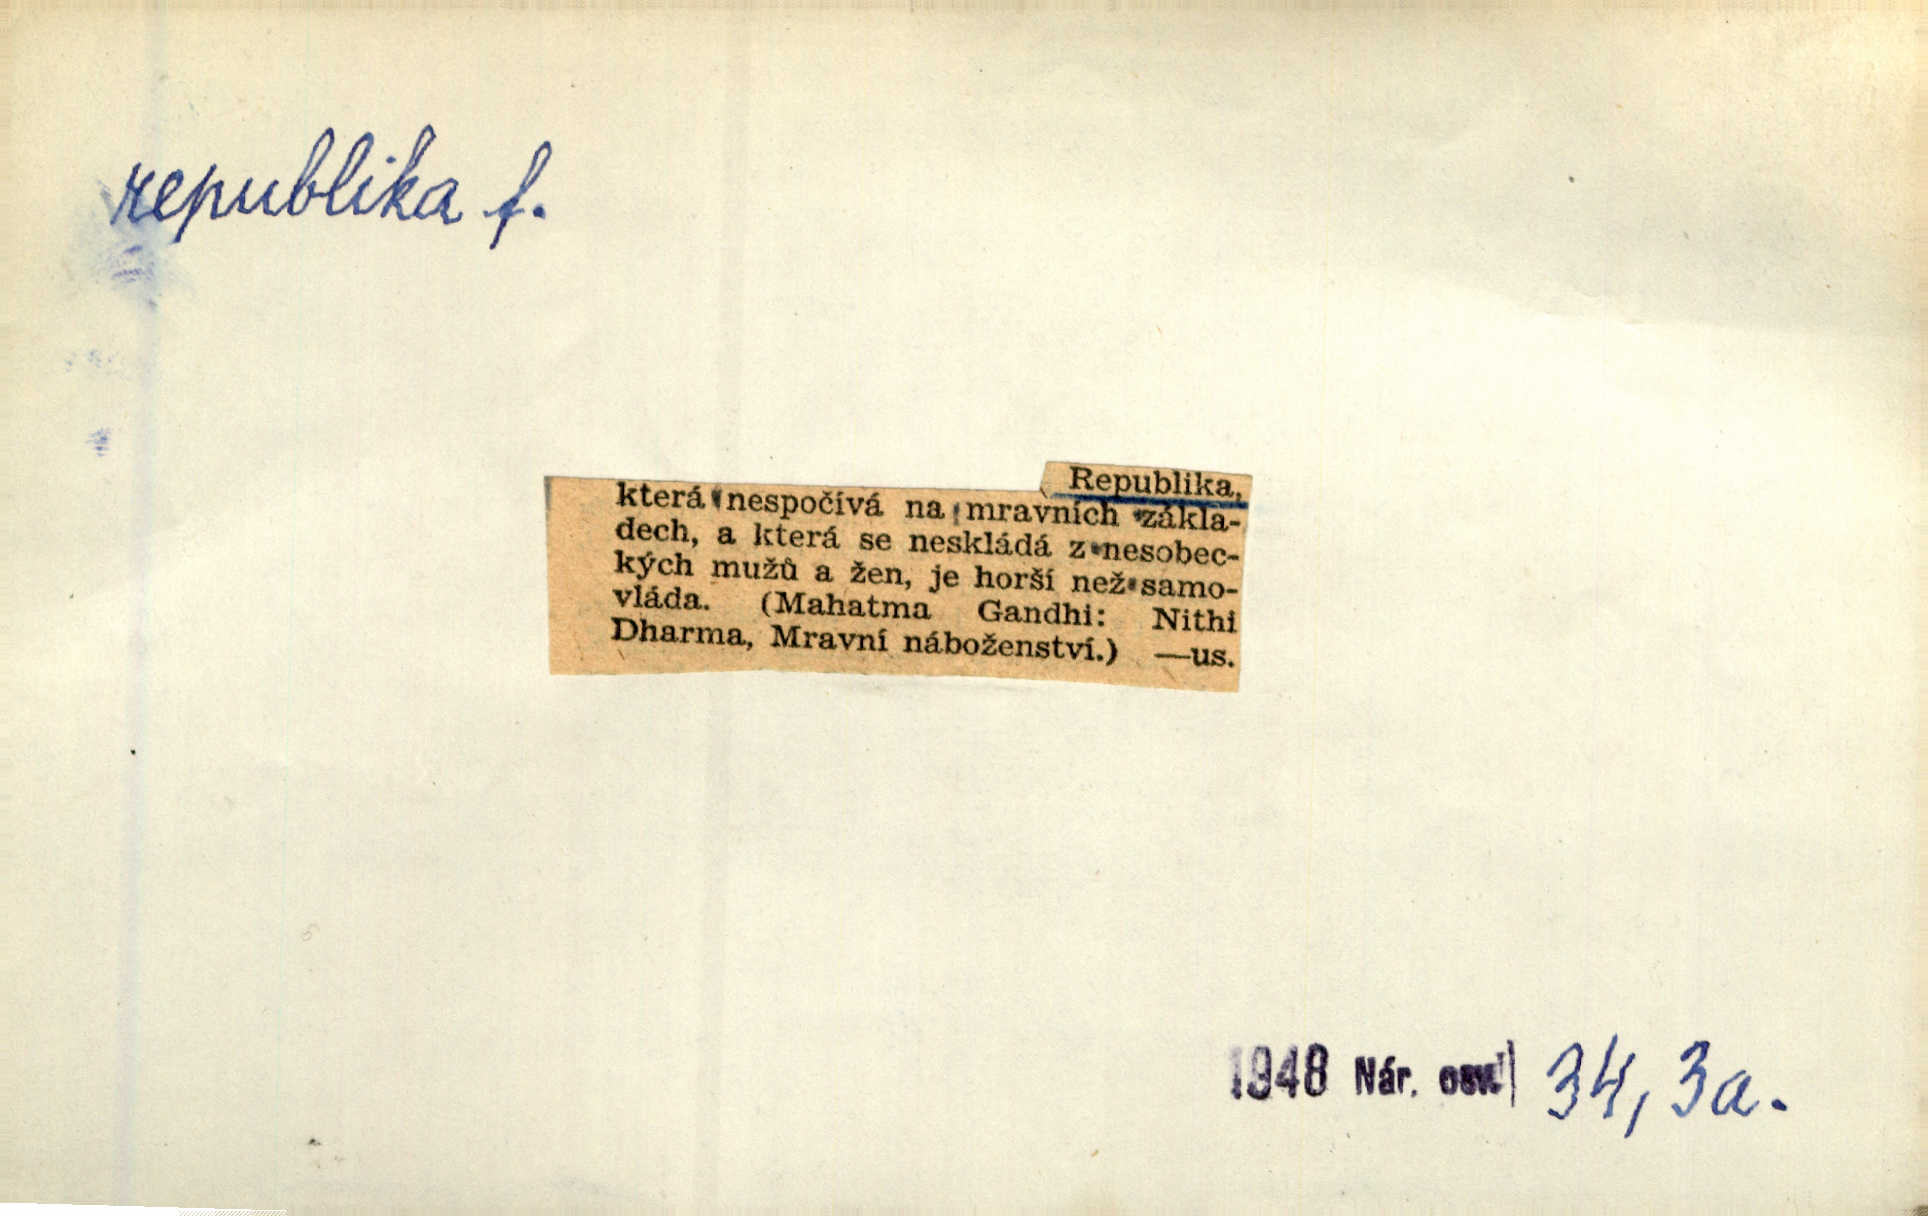 republika f.
Republika,
která nespočívá na mravních zákla-
dech, a která se neskládá z nesobec-
kých mužů a žen, je horší než samo-
vláda. (Mahatma Gandhi: Nithi
Dharma, Mravní náboženství.) —us.
1948 Nár. osv. 34, 3a.